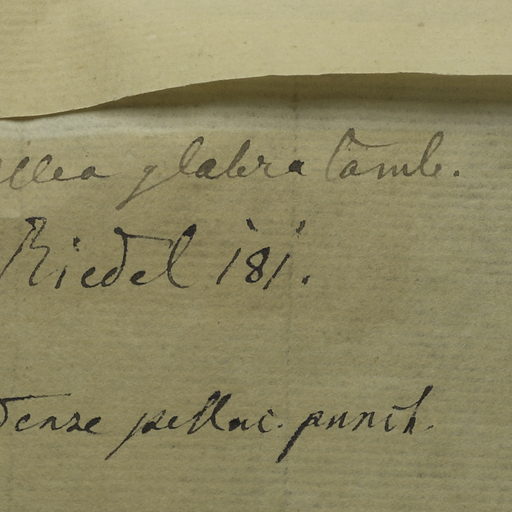 ellea glabra Camb.
Riedel 181.
dense pelluc. punct.